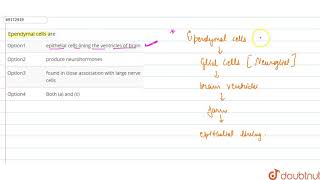 69172949
Ependymal cells are
Option1 epithelial cells lining the ventricles of brain
Option2 produce neurohormones
Option3 found in close association with large nerve cells
Option4 Both (a) and (c)
* Ependymal cells
Glial Cells [Neuroglia]
brain ventricles
form
epithelial lining.
doubtnut